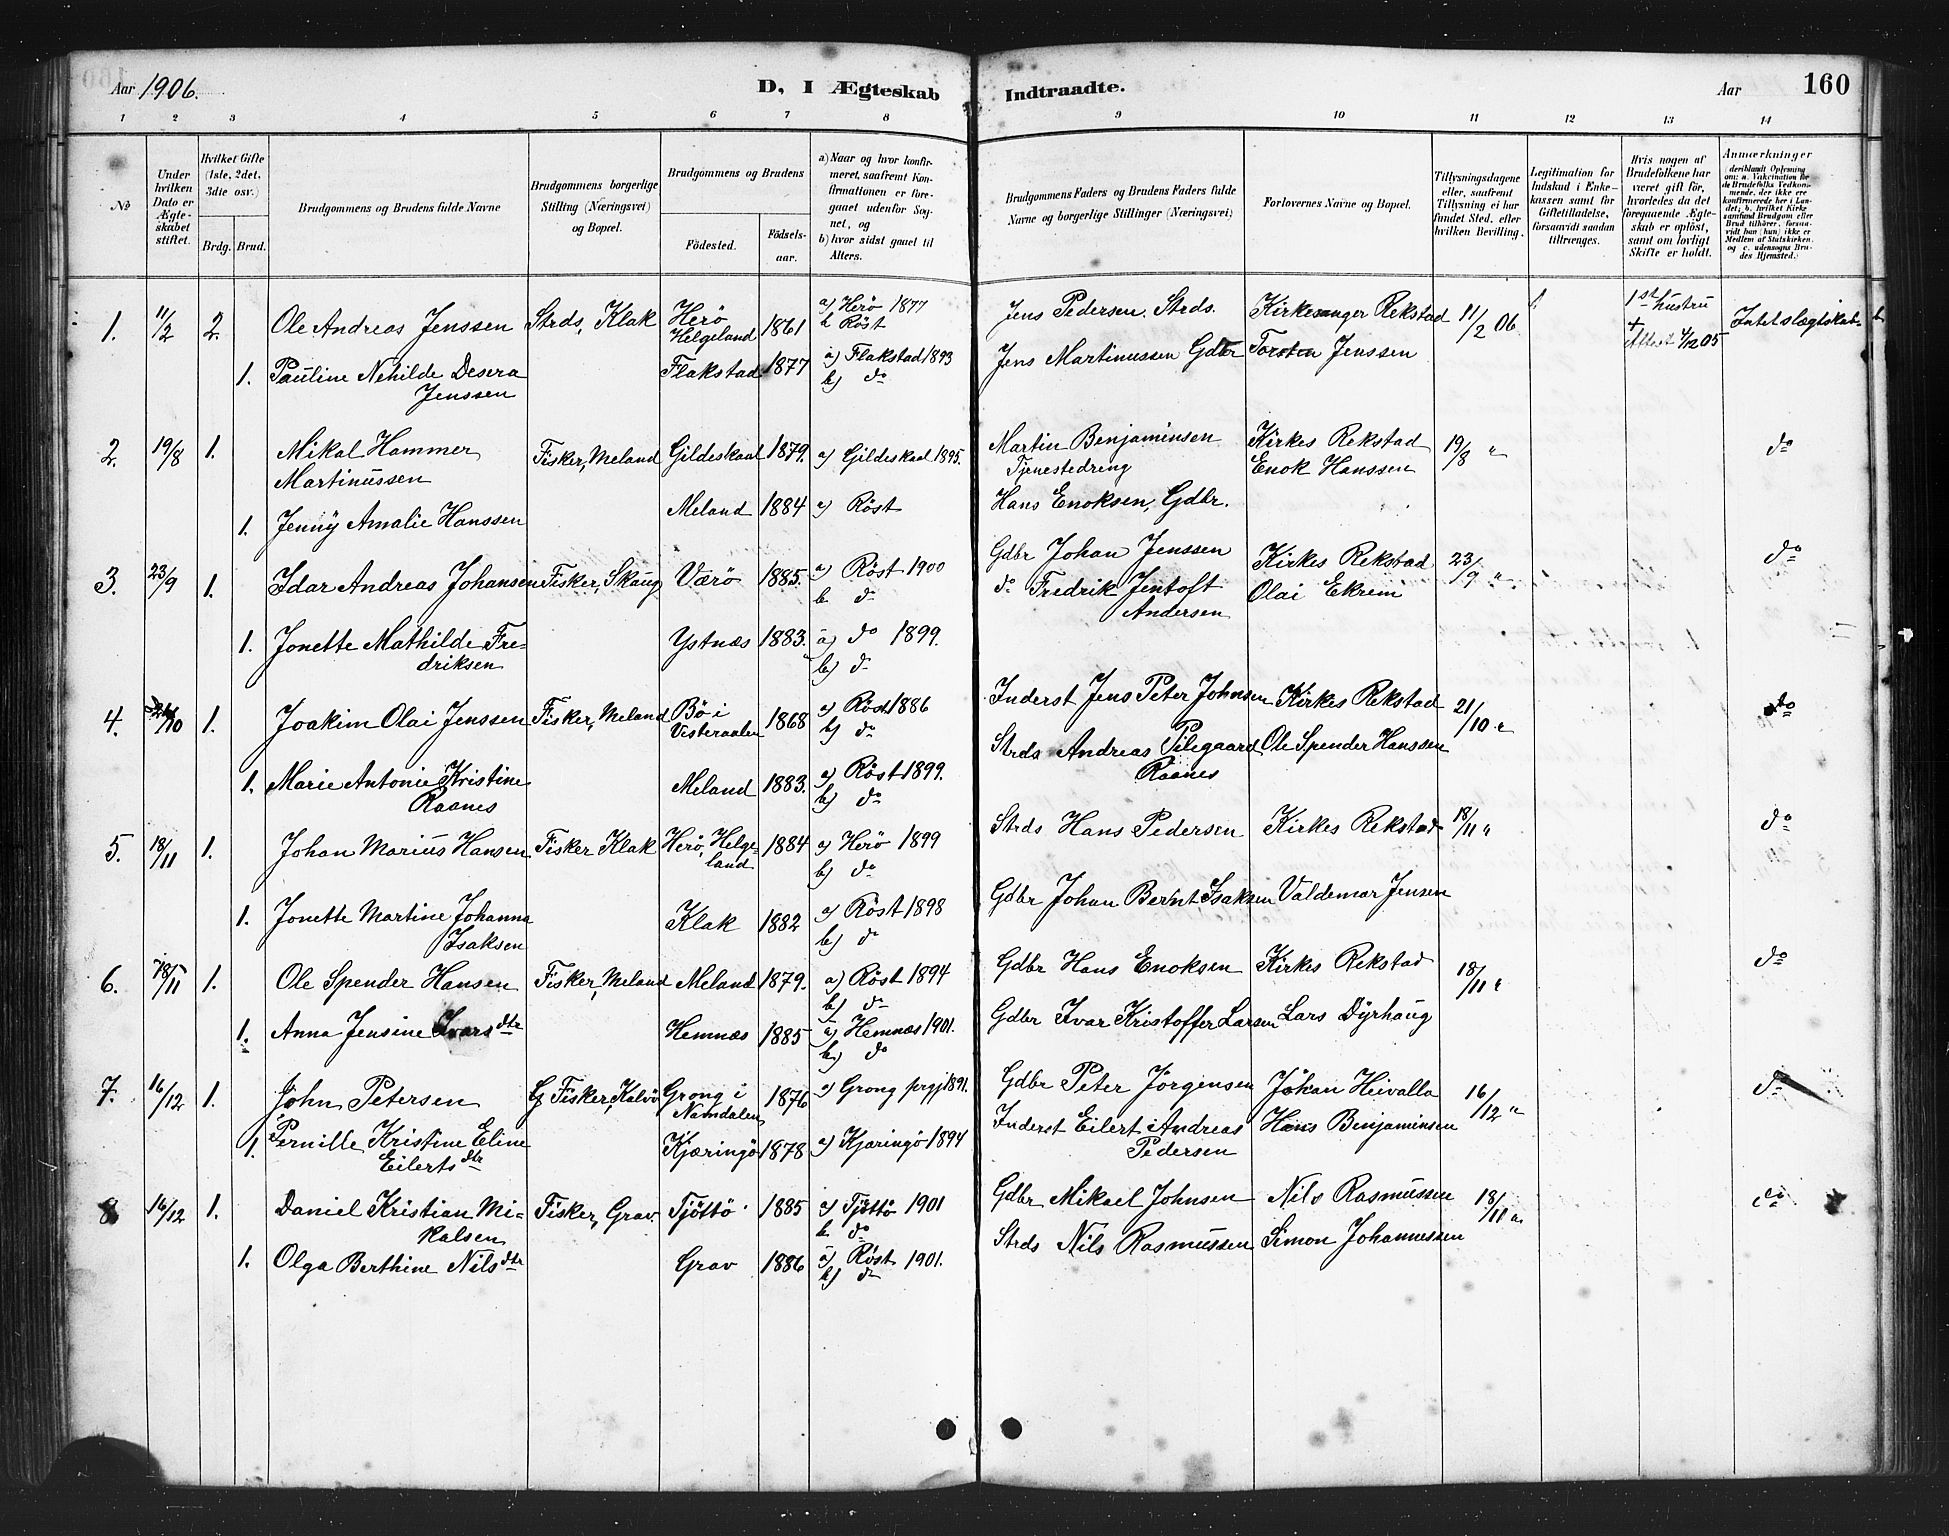 Aar 1906.
D. I Ægteskab Indtraadte.
Aar 160
1 2 3 4 5 6 7 8 9 10 11 12 13 14
No
Under hvilken Dato er Ægteskabet stiftet.
Hvilket Gifte (1ste, 2det, 3die osv.)
Brdg. Brud.
Brudgommens og Brudens fulde Navne
Brudgommens borgerlige Stilling (Næringsvei) og Bopæl.
Brudgommens og Brudens
Fødested.
Fødselsaar.
a) Naar og hvor konfirmeret, saafremt Konfirmationen er foregaaet udenfor Sognet, og
b) hvor sidst gaaet til Alters.
Brudgommens Faders og Brudens Faders fulde Navne og borgerlige Stillinger (Næringsvei)
Forlovernes Navne og Bopæl.
Tillysningsdagene eller, saafremt Tillysning ei har fundet Sted, efter hvilken Bevilling.
Legitimation for Indskud i Enkekassen samt for Giftetilladelse, forsaavidt saadan tiltrænges.
Hvis nogen af Brudefolkene har været gift før, hvorledes da det foregaaende Ægteskab er opløst, samt om lovligt Skifte er holdt.
Anmærkninger
(deriblandt Oplysning om: a. Vakcination for de Brudefolks Vedkommende, der ikke ere konfirmerede her i Landet; b. hvilket Kirkesamfund Brudgom eller Brud tilhører, forsaavidt han (hun) ikke er Medlem af Statskirken, og c. udensogns Brudes Hjemsted.)
1. 11/2 2. Ole Andreas Jenssen Strds, Klak Herö Helgeland 1861 a) Herö 1877 b Röst Jens Pedersen. Strds. Kirkesanger Rekstad 11/2 06 1st hustru + Attest 4/12 05 Intet slægtskab
1. Pauline Nehilde Desera Jenssen Flakstad 1877 a) Flakstad 1893 b) do Jens Martinussen Gdbr Torsten Jenssen
2. 19/8 1. Mikal Hammer Martinussen Fisker, Meland Gildeskaal 1879. a) Gildeskaal 1895. Martin Benjaminsen Tjenestedreng Kirkes Rekstad 19/8 " do
1. Jenny Amalie Hanssen Meland 1884 a) Röst Hans Enoksen, Gdbr. Enok Hanssen
3. 23/9 1. Idar Andreas Johansen Fisker, Skaug Værö 1885. a) Röst 1900 b do Gdbr Johan Jenssen Kirkes Rekstad 23/9 " do
1. Jonette Mathilde Fredriksen Ystnæs 1883. a) do 1899. b) do do Fredrik Jentoft Andersen Olai Ekrem
4. 21/10 1. Joakim Olai Jenssen Fisker, Meland Bö i Vesteraalen 1868 a) Röst 1886 b) do Inderst Jens Peter Johnsen Kirkes Rekstad 21/10 " do
1. Marie Antonie Kristine Raanes Meland 1883. a) Röst 1899. b) do Strds Andreas Pilegaard Raanes Ole Spender Hanssen
5. 18/11 1. Johan Marius Hansen Fisker Klak Herö, Helgeland 1884 a) Herö 1899 b) do Strds Hans Pedersen Kirkes Rekstad 18/11 " do
1. Jonette Martine Johanna Isaksen Klak 1882 a) Röst 1898 b) do Gdbr Johan Bernt Isaksen Valdemar Jensen
6. 18/11 1. Ole Spender Hansen Fisker, Meland Meland 1879. a) Röst 1894 b) do Gdbr Hans Enoksen Kirkes Rekstad 18/11 " do
1. Anna Jensine Ivarsdtr Hemnæs 1885 a) Hemnæs 1901. b) do Gdbr Ivar Kristoffer Larsen Lars Dyrhaug
7. 16/12 1. John Petersen Fisker, Kalvö Grong i Namdalen 1876 a) Grong prgj 1891. Gdbr Peter Jörgensen Johan Heivalla 16/12 " do
1. Pernille Kristine Eline Eilertsdtr Kjæringö 1878 a) Kjæringö 1894 Inderst Eilert Andreas Pedersen Hans Benjaminsen
8 16/12 1. Daniel Kristian Mikalsen Fisker, Grav. Tjöttö 1885 a) Tjöttö 1901 b do Gdbr Mikael Johnsen Nils Rasmussen 18/11 " do
1. Olga Berthine Nilsdtr Grav 1886 a) Röst 1901. b) do Strds Nils Rasmussen Simon Johannessen